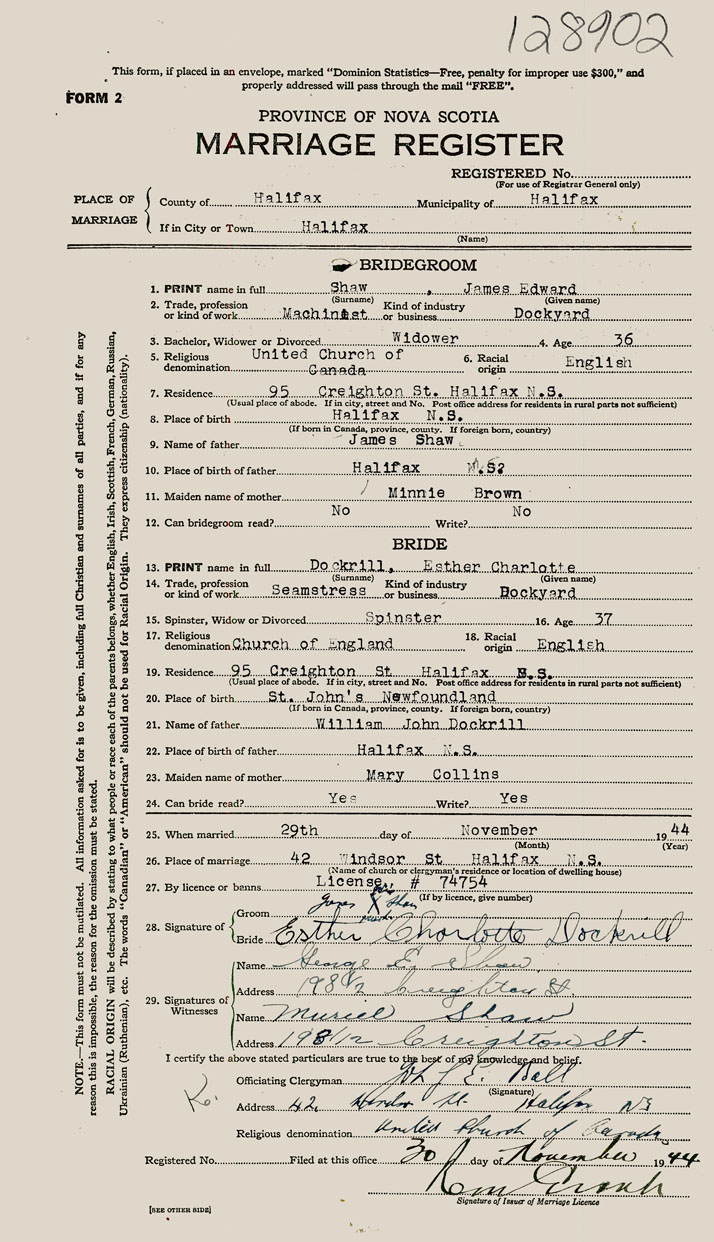 128902
This form, if placed in an envelope, marked "Dominion Statistics—Free, penalty for improper use $300," and
properly addressed will pass through the mail "FREE".
FORM 2
PROVINCE OF NOVA SCOTIA
MARRIAGE REGISTER
REGISTERED No.
(For use of Registrar General only)
PLACE OF MARRIAGE
County of Halifax Municipality of Halifax
If in City or Town Halifax
(Name)
BRIDEGROOM
1. PRINT name in full Shaw , James Edward
(Surname) (Given name)
2. Trade, profession or kind of work Machinist Kind of industry or business Dockyard
3. Bachelor, Widower or Divorced Widower 4. Age 36
5. Religious denomination United Church of Canada 6. Racial origin English
7. Residence 95 Creighton St. Halifax N.S.
(Usual place of abode. If in city, street and No. Post office address for residents in rural parts not sufficient)
8. Place of birth Halifax N.S.
(If born in Canada, province, county. If foreign born, country)
9. Name of father James Shaw
10. Place of birth of father Halifax N.S?
11. Maiden name of mother Minnie Brown
12. Can bridegroom read? No Write? No
BRIDE
13. PRINT name in full Dockrill, Esther Charlotte
(Surname) (Given name)
14. Trade, profession or kind of work Seamstress Kind of industry or business Dockyard
15. Spinster, Widow or Divorced Spinster 16. Age 37
17. Religious denomination Church of England 18. Racial origin English
19. Residence 95 Creighton St Halifax N.S.
(Usual place of abode. If in city, street and No. Post office address for residents in rural parts not sufficient)
20. Place of birth St. John's Newfoundland
(If born in Canada, province, county. If foreign born, country)
21. Name of father William John Dockrill
22. Place of birth of father Halifax N.S.
23. Maiden name of mother Mary Collins
24. Can bride read? Yes Write? Yes
25. When married 29th day of November 1944
(Month) (Year)
26. Place of marriage 42 Windsor St Halifax N.S.
(Name of church or clergyman's residence or location of dwelling house)
27. By licence or banns License # 74754
(If by licence, give number)
28. Signature of
Groom James X Shaw
Bride Esther Charlotte Dockrill
29. Signatures of Witnesses
Name George E. Shaw
Address 198 1/2 Creighton St.
Name Muriel Shaw
Address 198 1/2 Creighton St.
I certify the above stated particulars are true to the best of my knowledge and belief.
Officiating Clergyman J. E. Ball
(Signature)
Address 42 Windsor St. Halifax NS
Religious denomination United Church of Canada
Registered No. Filed at this office 30 day of November 1944
Signature of Issuer of Marriage Licence
[SEE OTHER SIDE]
NOTE.—This form must not be mutilated. All information asked for is to be given, including full Christian and surnames of all parties, and if for any
reason this is impossible, the reason for the omission must be stated.
RACIAL ORIGIN will be described by stating to what people or race each of the parents belongs, whether English, Irish, Scottish, French, German, Russian,
Ukrainian (Ruthenian), etc. The words "Canadian" or "American" should not be used for Racial Origin. They express citizenship (nationality).